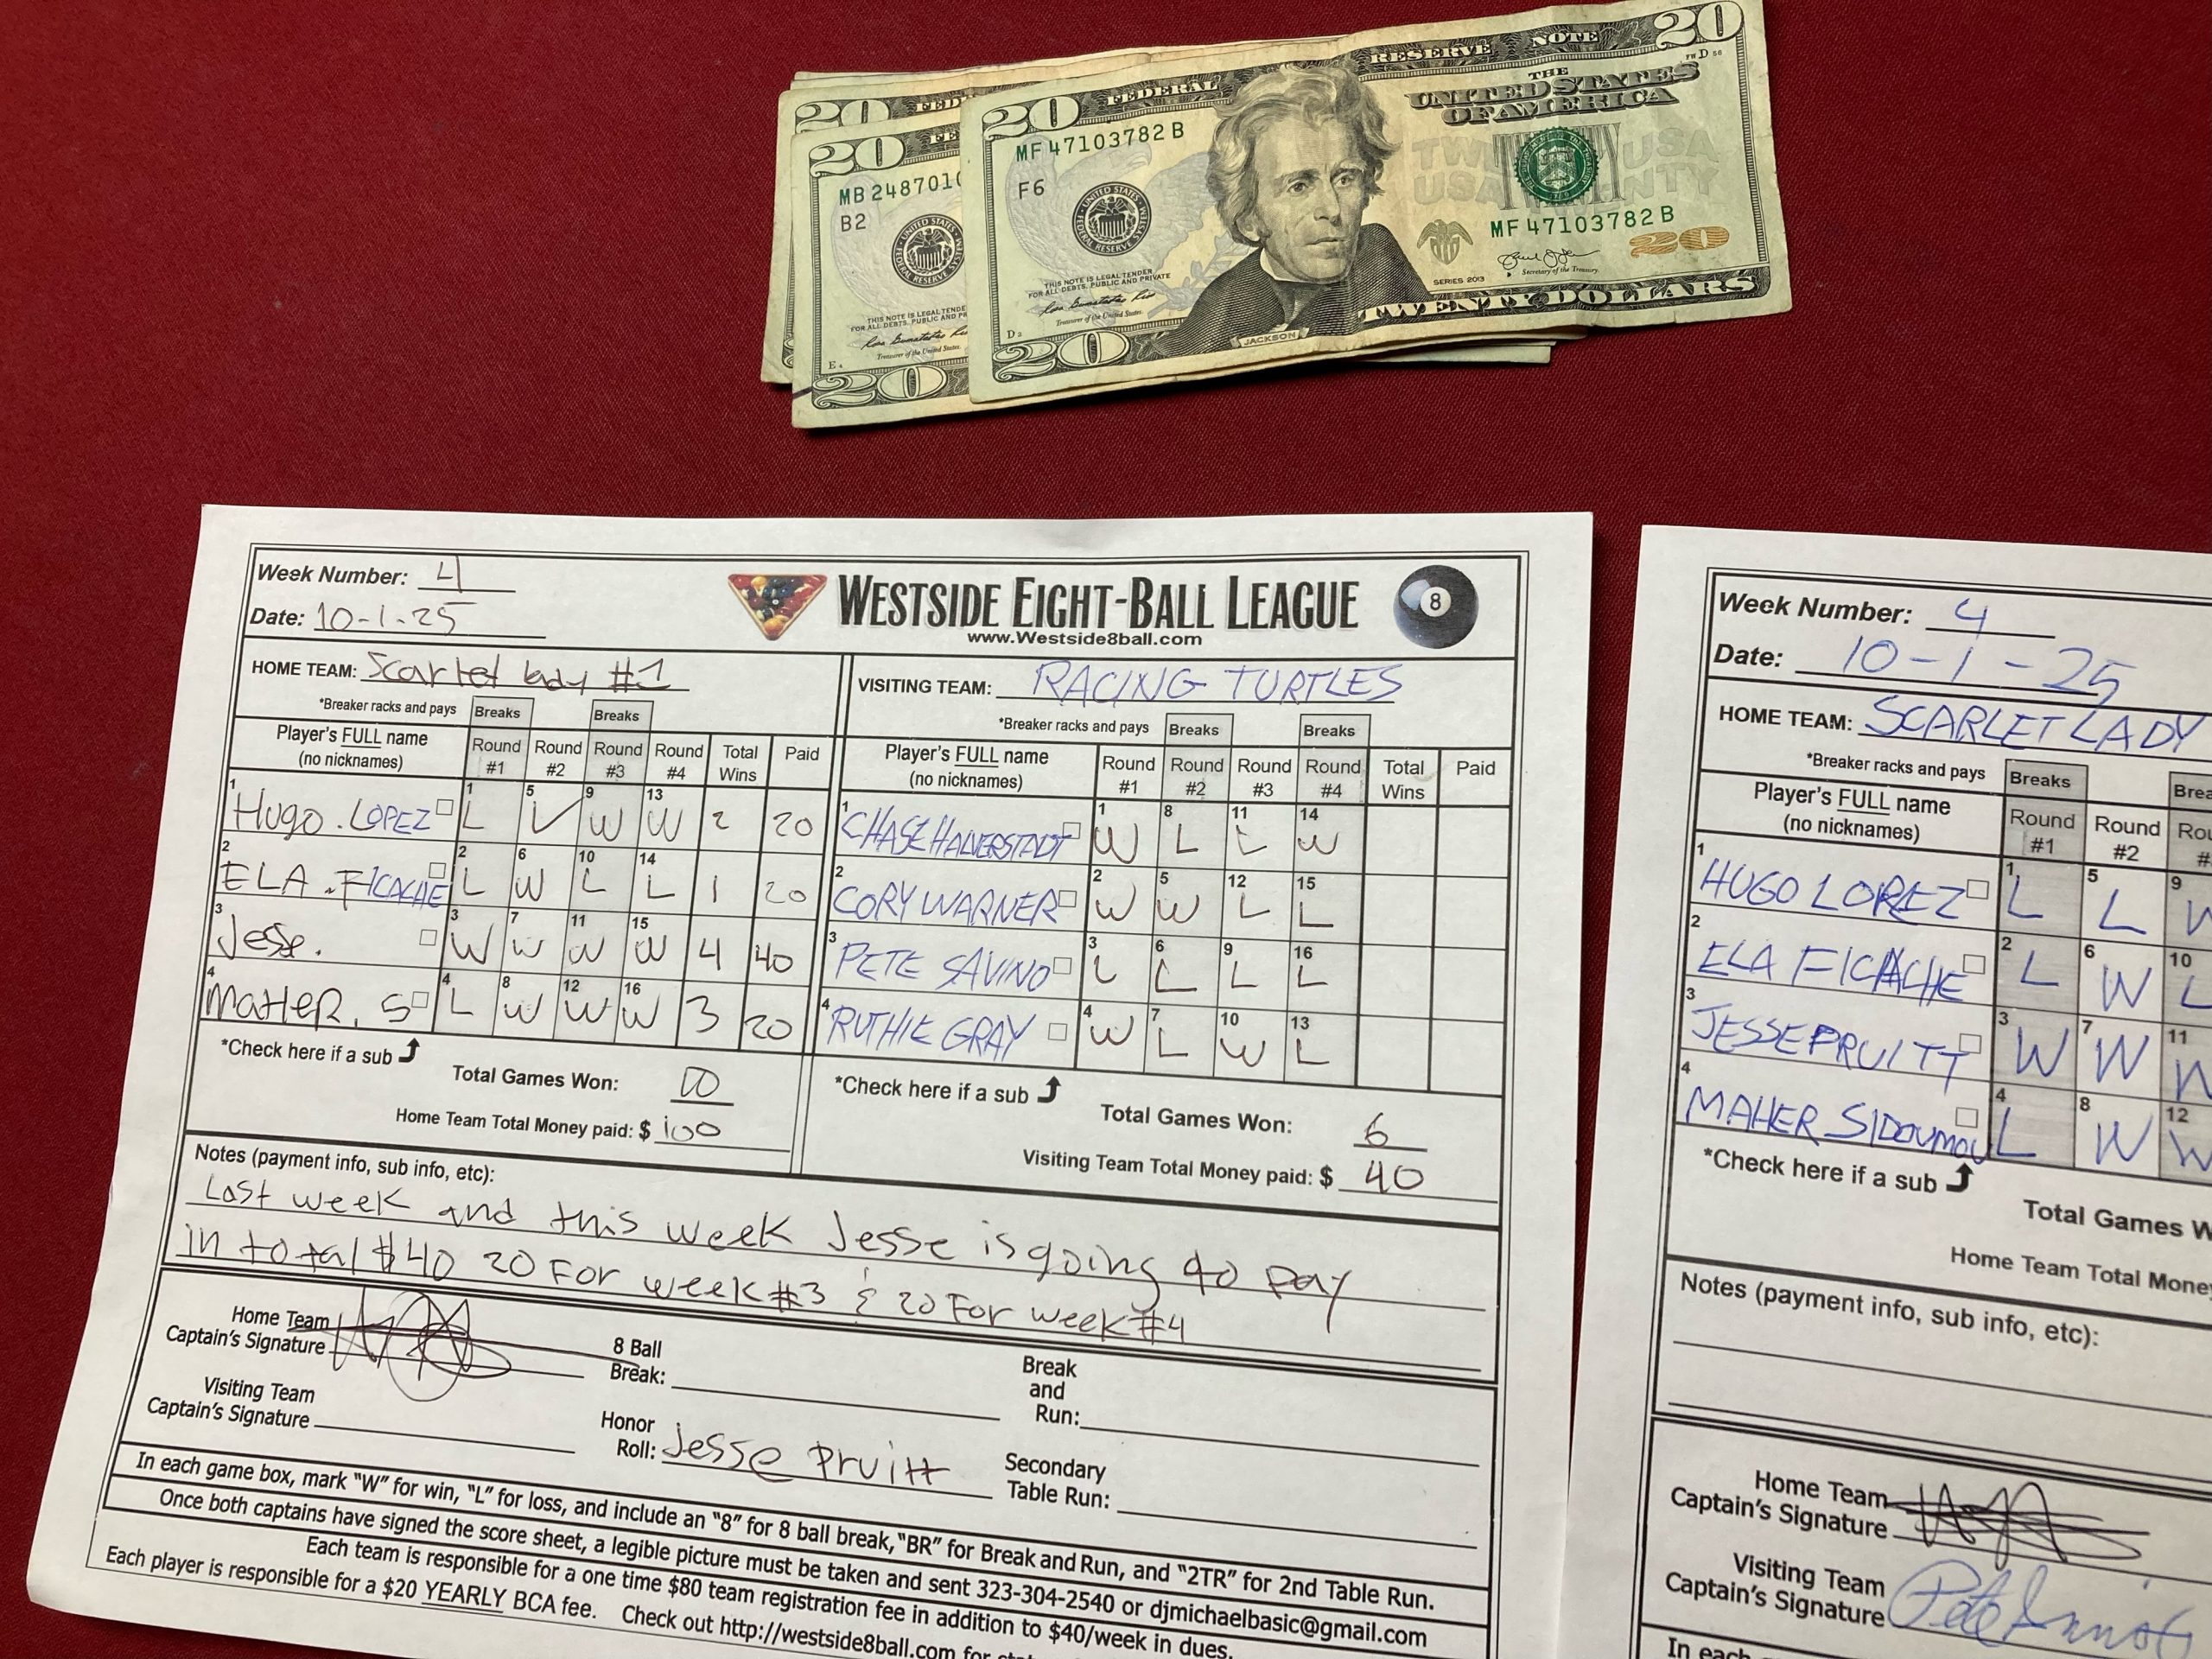 20 FEDERAL RESERVE NOTE 20
THE
UNITED STATES
OF AMERICA
MF 47103782 B
F6
TWENTY USA
USA TWENTY
MF 47103782 B
20
THIS NOTE IS LEGAL TENDER
FOR ALL DEBTS, PUBLIC AND PRIVATE
Treasurer of the United States.
SERIES 2013
Secretary of the Treasury.
D 2
JACKSON
20 TWENTY DOLLARS
20 FED
20 FE
MB 248701
B2
THIS NOTE IS LEGAL TENDE
FOR ALL DEBTS, PUBLIC AND PR
Treasurer of the United States.
E 4
20
Week Number: 4
Date: 10-1-25
WESTSIDE EIGHT-BALL LEAGUE 8
www.Westside8ball.com
HOME TEAM: Scarlet lady #1
*Breaker racks and pays Breaks Breaks
Player's FULL name (no nicknames) Round #1 Round #2 Round #3 Round #4 Total Wins Paid
1 Hugo. LOPEZ 1 L 5 9 W 13 W 2 20
2 ELA. FICACHE 2 L 6 W 10 L 14 L 1 20
3 Jesse. 3 W 7 W 11 W 15 W 4 40
4 MaHER. S 4 L 8 W 12 W 16 W 3 20
*Check here if a sub
Total Games Won: 10
Home Team Total Money paid: $ 100
VISITING TEAM: RACING TURTLES
*Breaker racks and pays Breaks Breaks
Player's FULL name (no nicknames) Round #1 Round #2 Round #3 Round #4 Total Wins Paid
1 CHASE HALVERSTADT 1 W 8 L 11 L 14 W
2 CORY WARNER 2 W 5 W 12 L 15 L
3 PETE SAVINO 3 L 6 L 9 L 16 L
4 RUTHIE GRAY 4 W 7 L 10 W 13 L
*Check here if a sub
Total Games Won: 6
Visiting Team Total Money paid: $ 40
Notes (payment info, sub info, etc):
Last week and this week Jesse is going to pay
in total $40 20 For week #3 & 20 For week #4
Home Team
Captain's Signature
Visiting Team
Captain's Signature
8 Ball
Break:
Honor
Roll: Jesse Pruitt
Break
and
Run:
Secondary
Table Run:
In each game box, mark "W" for win, "L" for loss, and include an "8" for 8 ball break, "BR" for Break and Run, and "2TR" for 2nd Table Run.
Once both captains have signed the score sheet, a legible picture must be taken and sent 323-304-2540 or djmichaelbasic@gmail.com
Each team is responsible for a one time $80 team registration fee in addition to $40/week in dues.
Each player is responsible for a $20 YEARLY BCA fee. Check out http://westside8ball.com for
Week Number: 4
Date: 10-1-25
HOME TEAM: SCARLET LADY
*Breaker racks and pays Breaks Brea
Player's FULL name (no nicknames) Round #1 Round #2 Rou #
1 HUGO LOPEZ 1 L 5 L 9 W
2 ELA FICACHE 2 L 6 W 10 L
3 JESSE PRUITT 3 W 7 W 11 W
4 MAHER SIDOUMOU 4 L 8 W 12 W
*Check here if a sub
Total Games W
Home Team Total Money
Notes (payment info, sub info, etc):
Home Team
Captain's Signature
Visiting Team
Captain's Signature
In each